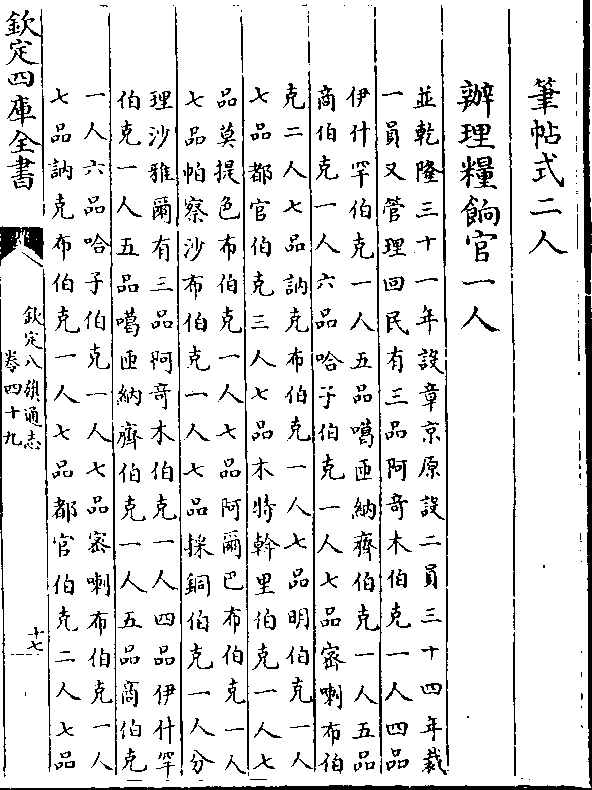 筆帖式二人
辦理糧餉官一人
並乾隆三十一年設章京原設二員三十四年裁
一員又管理回民有三品阿竒木伯克一人四品
伊什罕伯克一人五品噶匝納齊伯克一人五品
商伯克一人六品哈子伯克一人七品宻喇布伯
克二人七品訥克布伯克一人七品明伯克一人
七品都官伯克三人七品木特斡里伯克一人七
品莫提色布伯克一人七品阿爾巴布伯克一人
七品帕察沙布伯克一人七品採銅伯克一人分
理沙雅爾有三品阿竒木伯克一人四品伊什罕
伯克一人五品噶匝納齊伯克一人五品商伯克
一人六品哈子伯克一人七品宻喇布伯克一人
七品訥克布伯克一人七品都官伯克二人七品
欽定四庫全書
欽定八旗通志
卷四十九
十七